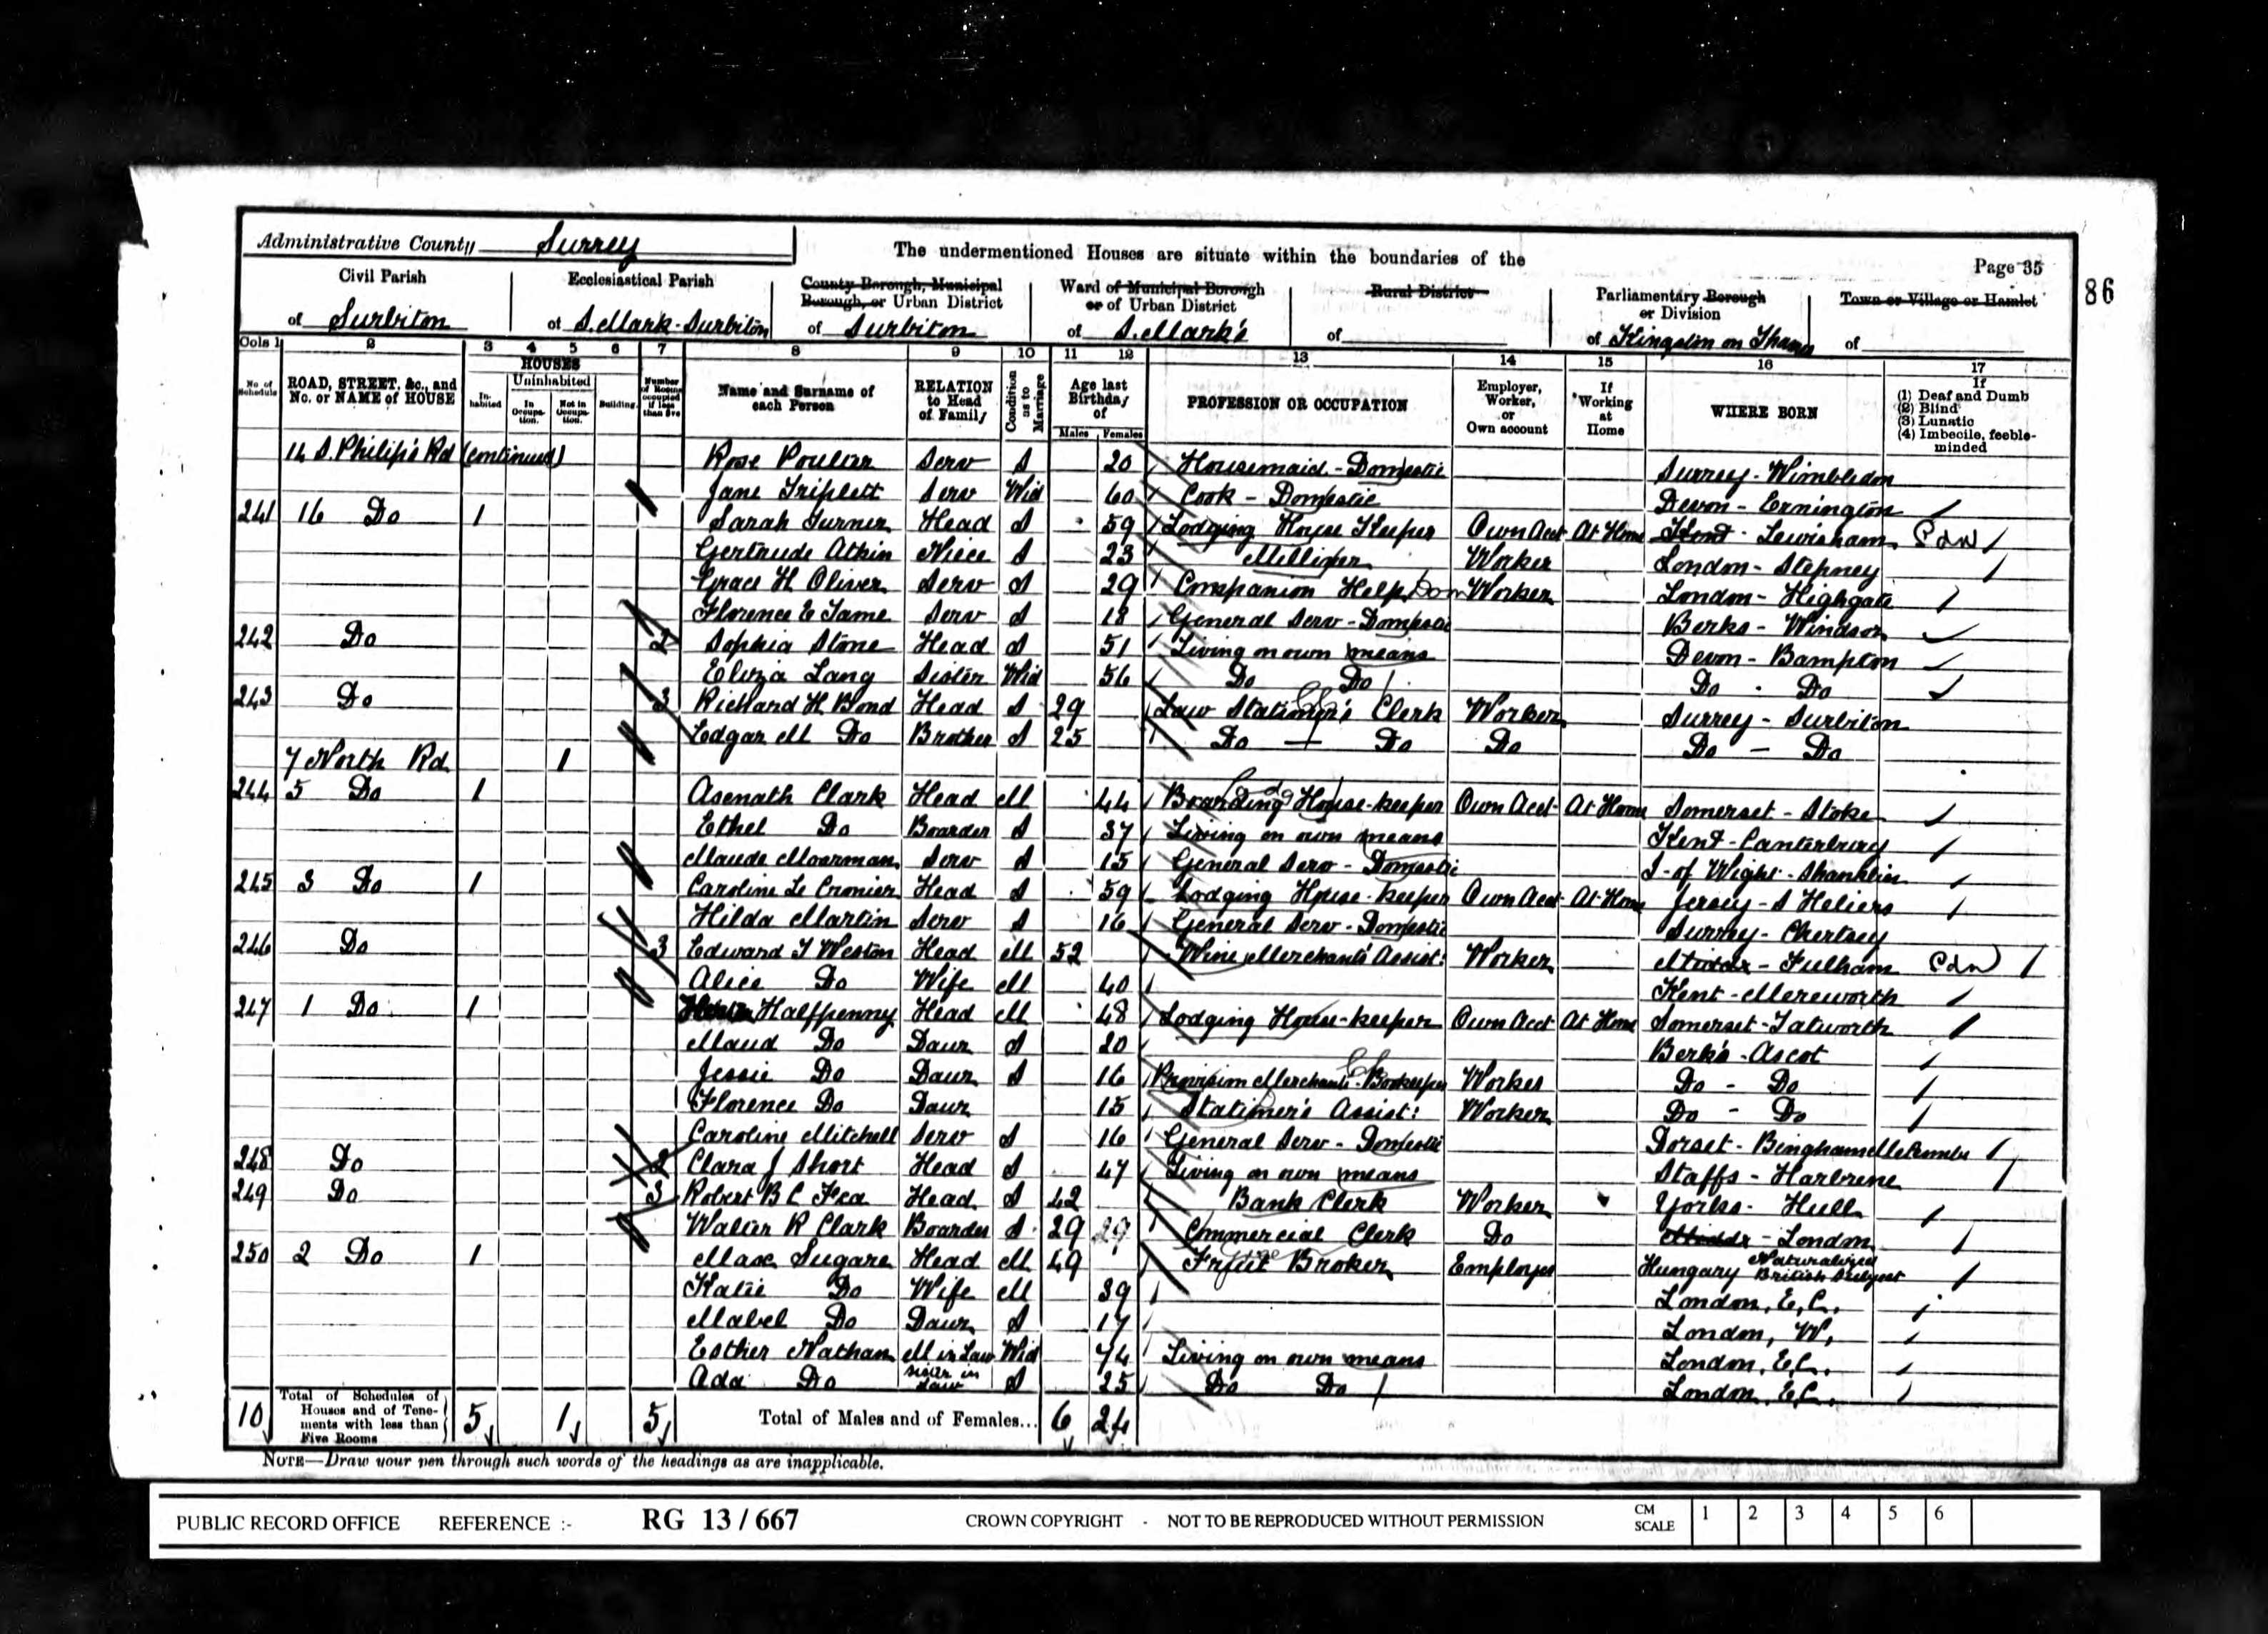 Administrative County Surrey
The undermentioned Houses are situate within the boundaries of the
Page 35
86
Civil Parish of Surbiton
Ecclesiastical Parish of S. Mark - Surbiton
County Borough, Municipal Borough, or Urban District of Surbiton
Ward of Municipal Borough or of Urban District of S. Mark's
Rural District of
Parliamentary Borough or Division of Kingston on Thames
Town or Village or Hamlet of
Cols 1 2 3 4 5 6 7 8 9 10 11 12 13 14 15 16 17
No. of Schedule
ROAD, STREET, &c., and No. or NAME of HOUSE
HOUSES
Inhabited
Uninhabited
In Occupation.
Not in Occupation.
Building.
Number of Rooms occupied if less than five
Name and Surname of each Person
RELATION to Head of Family
Condition as to Marriage
Age last Birthday of
Males Females
PROFESSION OR OCCUPATION
Employer, Worker, or Own account
If Working at Home
WHERE BORN
If (1) Deaf and Dumb (2) Blind (3) Lunatic (4) Imbecile, feeble-minded
14 S. Philip's Rd (continued) Rose Poulter Serv S 20 Housemaid - Domestic Surrey - Wimbledon
Jane Triplett Serv Wid 60 Cook - Domestic Devon - Ermington
241 16 Do 1 Sarah Turner Head S 59 Lodging House Keeper Own Acct At Home Kent - Lewisham
Gertrude Atkin Niece S 23 Milliner Worker London - Stepney
Grace H. Oliver Serv S 29 Companion Help Dom Worker London - Highgate
Florence E Tame Serv S 18 General Serv - Domestic Berks - Windsor
242 Do 2 Sophia Stone Head S 51 Living on own means Devon - Bampton
Eliza Lang Sister Wid 56 Do Do Do - Do
243 Do 3 Richard H. Bond Head S 29 Law Stationer's Clerk Worker Surrey - Surbiton
Edgar M Do Brother S 25 Do - Do Do Do - Do
7 North Rd 1
244 5 Do 1 Asenath Clark Head M 44 Boarding House-keeper Own Acct At Home Somerset - Stoke
Ethel Do Boarder S 37 Living on own means Kent - Canterbury
Maude Moorman Serv S 15 General Serv - Domestic I. of Wight - Shanklin
245 3 Do 1 Caroline Le Cronier Head S 59 Lodging House-keeper Own Acct At Home Jersey - S Heliers
Hilda Martin Serv S 16 General Serv - Domestic Surrey - Chertsey
246 Do 3 Edward T Weston Head M 52 Wine Merchant's Assist: Worker Middx - Fulham
Alice Do Wife M 40 Kent - Mereworth
247 1 Do 1 Halfpenny Head M 48 Lodging House-keeper Own Acct At Home Somerset - Tatworth
Maud Do Daur S 20 Berks - Ascot
Jessie Do Daur S 16 Provision Merchant's Bookeeper Worker Do - Do
Florence Do Daur 15 Stationer's Assist: Worker Do - Do
Caroline Mitchell Serv S 16 General Serv - Domestic Dorset -
248 Do 2 Clara J Short Head S 47 Living on own means Staffs - Harbrne
249 Do 3 Robert B C Fea Head S 42 Bank Clerk Worker Yorks - Hull
Walter R Clark Boarder S 29 Commercial Clerk Do Middx - London
250 2 Do 1 Max Sugare Head M 49 Fruit Broker Employer Hungary Naturalized British Subject
Katie Do Wife M 39 London, E.C.
Mabel Do Daur S 17 London, W.
Esther Nathan M in Law Wid 74 Living on own means London, E.C.
Ada Do Sister in Law S 25 Do Do London, E.C.
10 Total of Schedules of Houses and of Tenements with less than Five Rooms 5 1 5 Total of Males and of Females... 6 24
NOTE—Draw your pen through such words of the headings as are inapplicable.
PUBLIC RECORD OFFICE REFERENCE :- RG 13 / 667 CROWN COPYRIGHT - NOT TO BE REPRODUCED WITHOUT PERMISSION CM SCALE 1 2 3 4 5 6